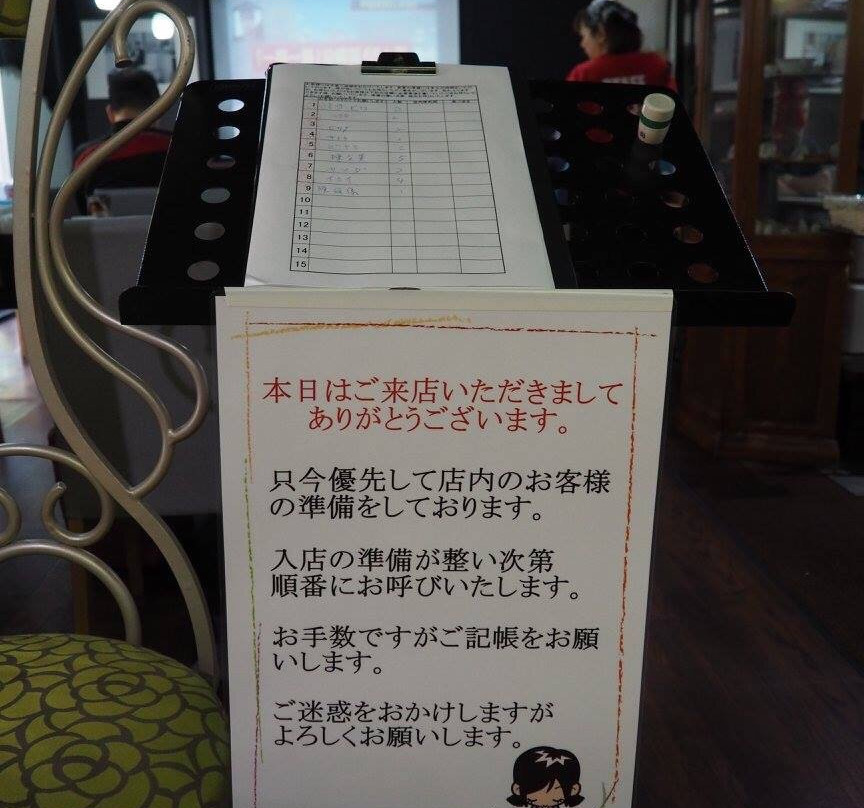 1
2
3
4
5
6
7
8
9
10
11
12
13
14
15
本日はご来店いただきまして
ありがとうございます。
只今優先して店内のお客様
の準備をしております。
入店の準備が整い次第
順番にお呼びいたします。
お手数ですがご記帳をお願
いします。
ご迷惑をおかけしますが
よろしくお願いします。